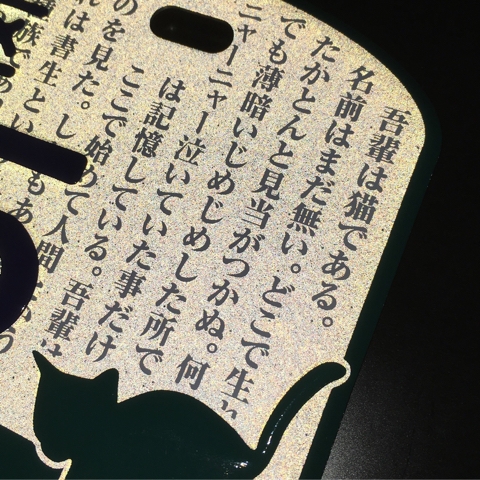 吾輩は猫である。
名前はまだ無い。どこで生
たかとんと見当がつかぬ。何
でも薄暗いじめじめした所で
ニャーニャー泣いていた事だけ
は記憶している。吾輩は
ここで始めて人間
のを見た。し もあ
は書生とい
族であ